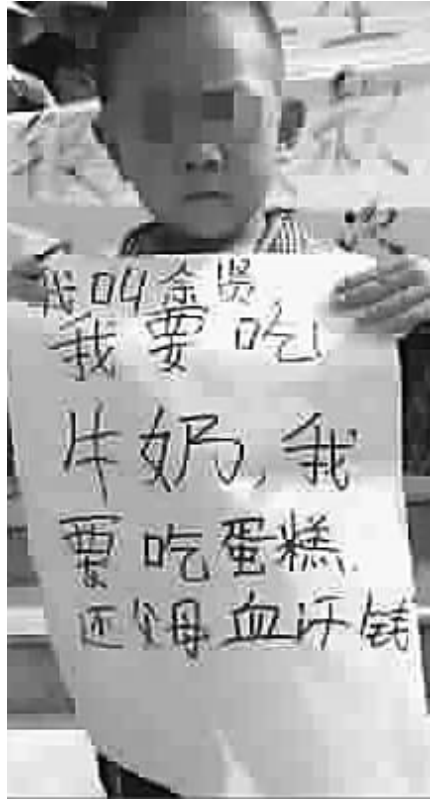 我叫余贤,
我要吃!
牛奶,我
要吃蛋糕.
还父母血汗钱